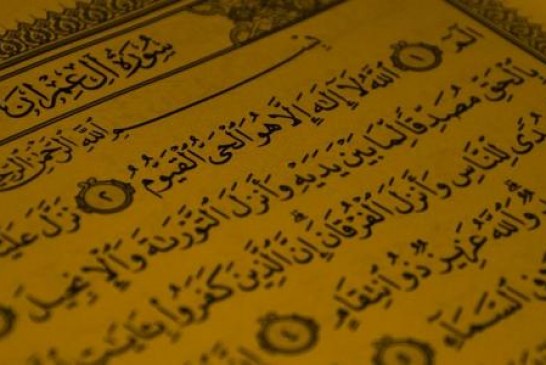 سُورَةُ آلِ عِمْرَانَ
بِسْمِ ٱللَّهِ ٱلرَّحْمَٰنِ ٱلرَّحِيمِ
الٓمٓ ١ ٱللَّهُ لَآ إِلَٰهَ إِلَّا هُوَ ٱلْحَىُّ ٱلْقَيُّومُ ٢ نَزَّلَ
بِٱلْحَقِّ مُصَدِّقًا لِّمَا بَيْنَ يَدَيْهِ وَأَنزَلَ ٱلتَّوْرَىٰةَ وَٱلْإِنجِيلَ
لِّلنَّاسِ وَأَنزَلَ ٱلْفُرْقَانَ إِنَّ ٱلَّذِينَ كَفَرُوا۟ بِـَٔايَٰتِ
وَٱللَّهُ عَزِيزٌ ذُو ٱنتِقَامٍ ٤
ٱلسَّمَآءِ